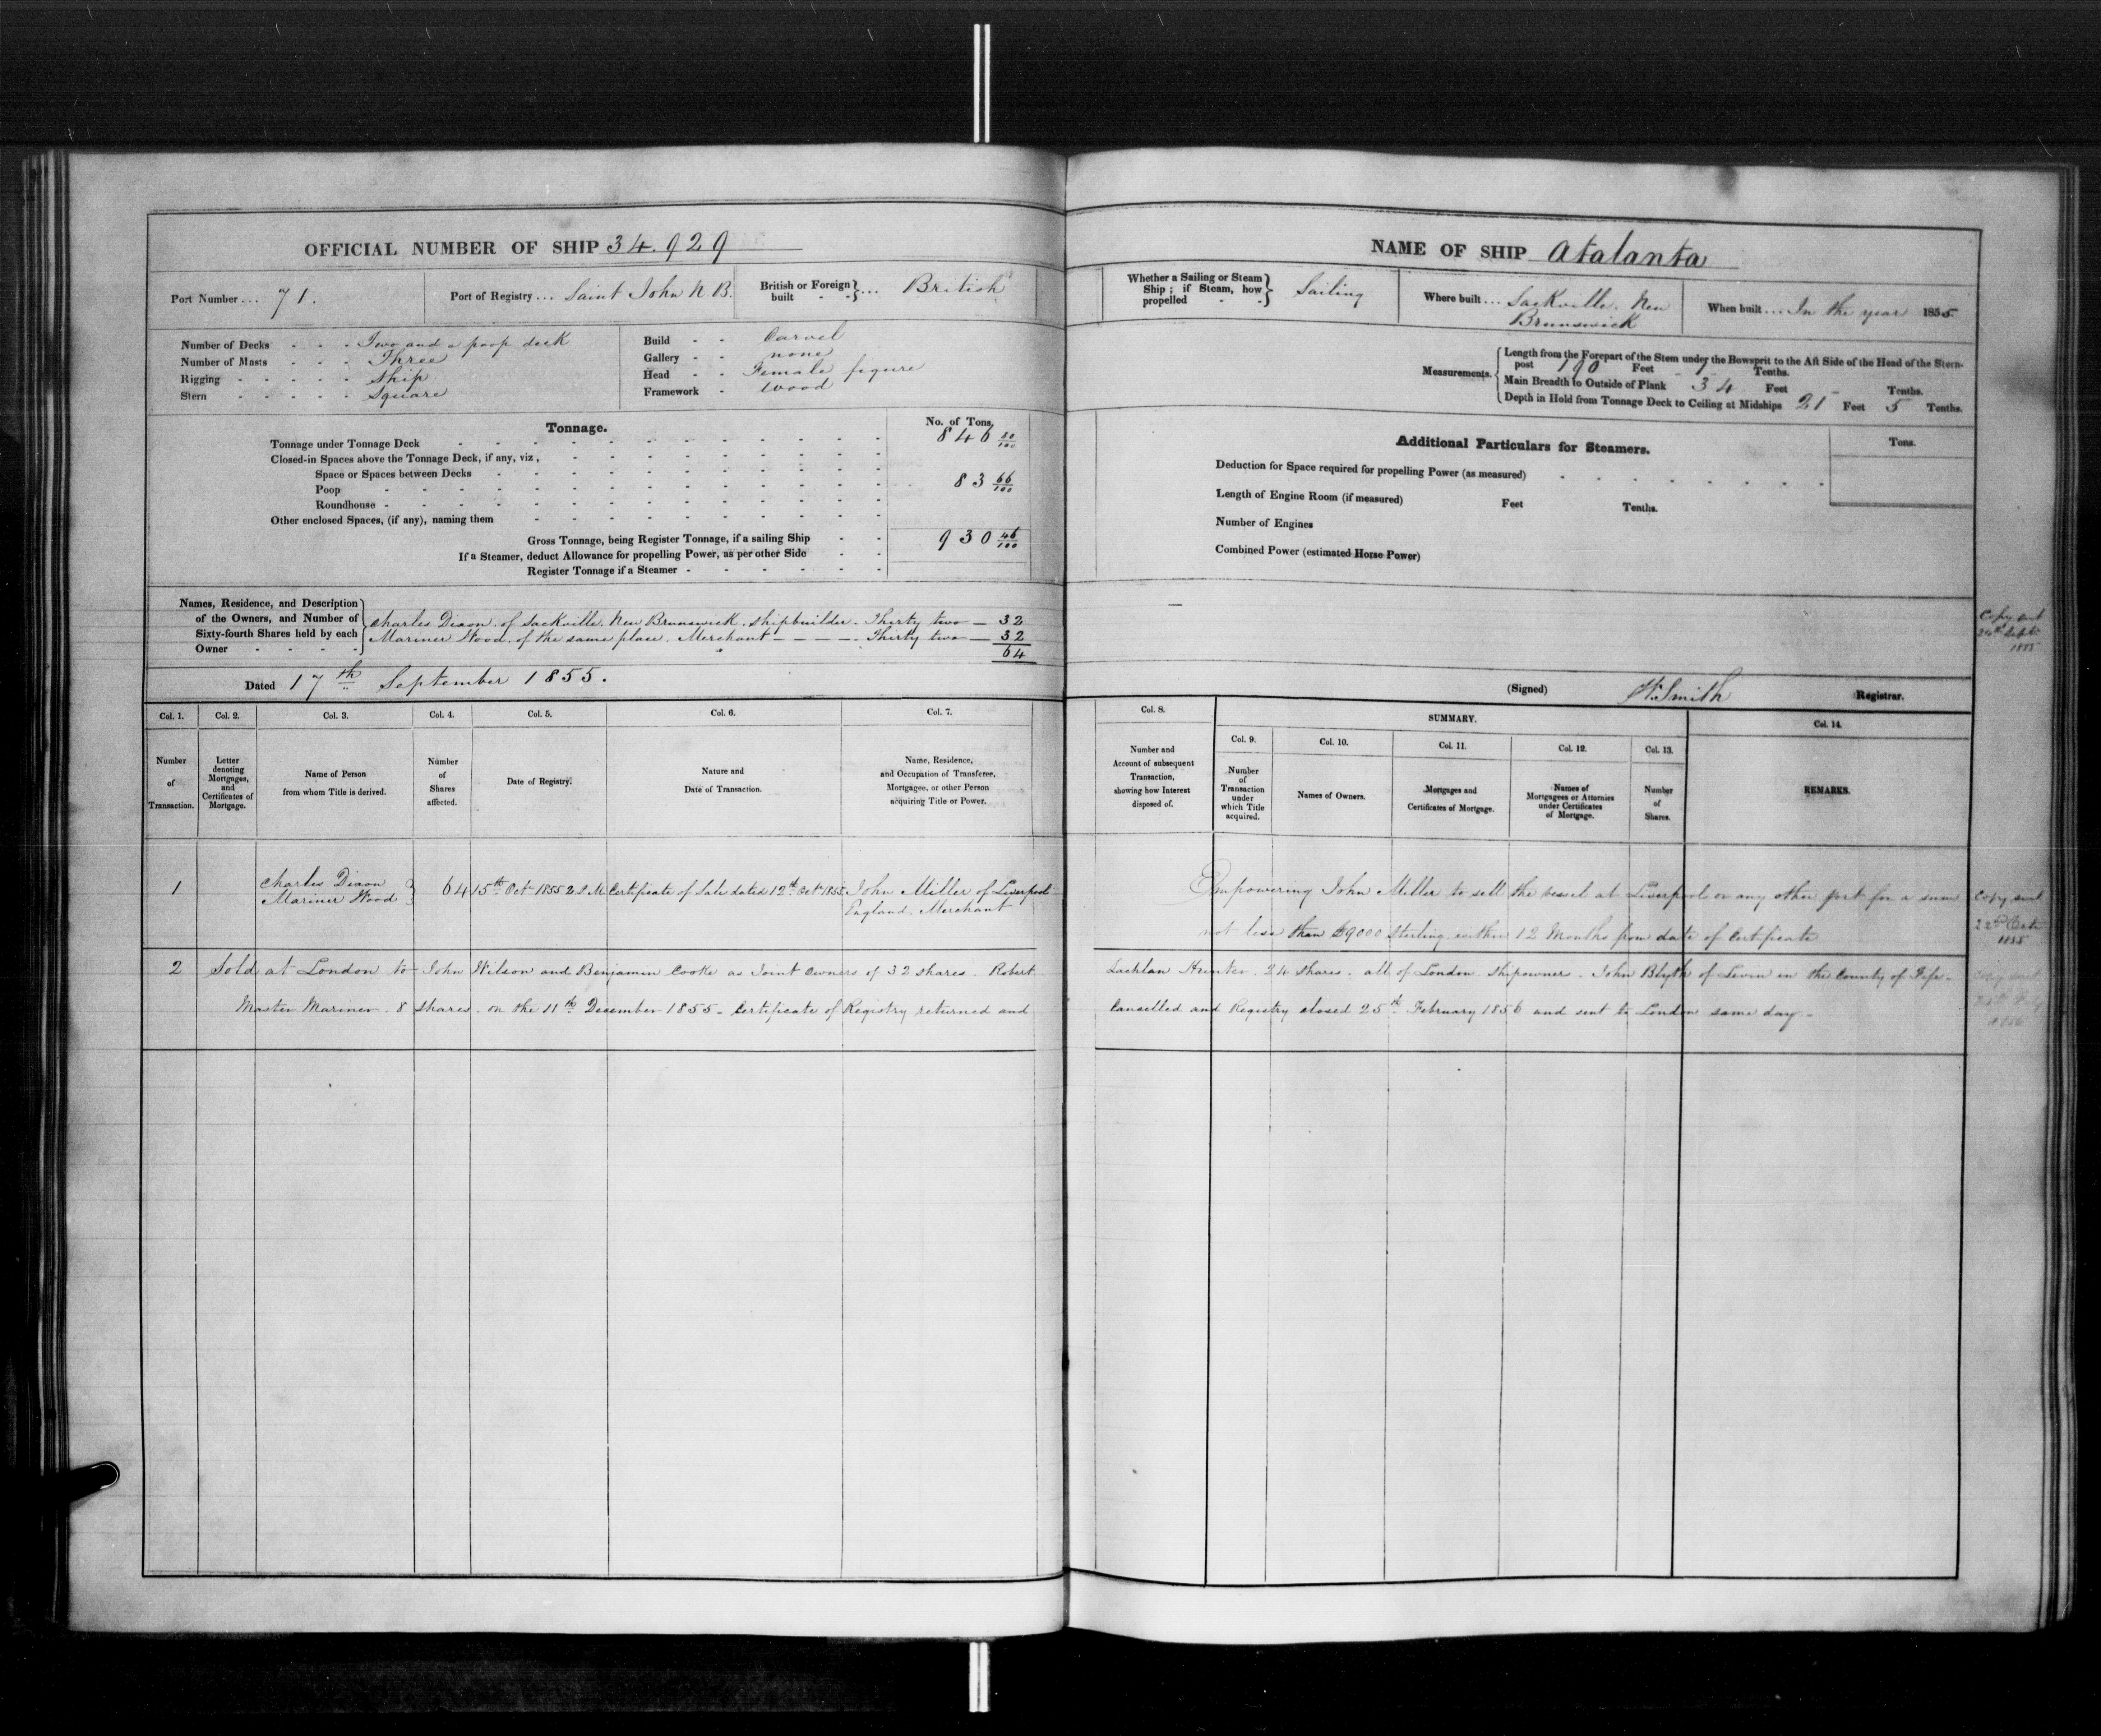 OFFICIAL NUMBER OF SHIP 34.929
Port Number ... 71.
Port of Registry ... Saint John N B.
British or Foreign built - - } ... British
Number of Decks - - - Two and a poop deck
Number of Masts - - - Three
Rigging - - - - - Ship
Stern - - - - - Square
Build - - Carvel
Gallery - - none
Head - - Female figure
Framework - wood
Tonnage.
No. of Tons.
Tonnage under Tonnage Deck 846 80/100
Closed-in Spaces above the Tonnage Deck, if any, viz,
Space or Spaces between Decks
Poop 83 66/100
Roundhouse
Other enclosed Spaces, (if any), naming them
Gross Tonnage, being Register Tonnage, if a sailing Ship - - 930 46/100
If a Steamer, deduct Allowance for propelling Power, as per other Side - -
Register Tonnage if a Steamer
Names, Residence, and Description
of the Owners, and Number of
Sixty-fourth Shares held by each
Owner - - - -
Charles Dixon of Sackville. New Brunswick. Shipbuilder. Thirty two — 32
Mariner Wood. of the same place. Merchant - - - - Thirty two — 32
64
Dated 17th September 1855.
NAME OF SHIP Atalanta
Whether a Sailing or Steam Ship; if Steam, how propelled - - } Sailing
Where built ... Sackville. New Brunswick
When built ... In the year 1855.
Measurements.
Length from the Forepart of the Stem under the Bowsprit to the Aft Side of the Head of the Stern-
post 190 Feet Tenths.
Main Breadth to Outside of Plank 34 Feet - Tenths.
Depth in Hold from Tonnage Deck to Ceiling at Midships 21 Feet 5 Tenths.
Additional Particulars for Steamers.
Tons.
Deduction for Space required for propelling Power (as measured)
Length of Engine Room (if measured) Feet Tenths.
Number of Engines
Combined Power (estimated Horse Power)
Copy sent
24th Septr
1855
(Signed) W. Smith Registrar.
Col. 1. Col. 2. Col. 3. Col. 4. Col. 5. Col. 6. Col. 7.
Number of Transaction.
Letter denoting Mortgages, and Certificates of Mortgage.
Name of Person from whom Title is derived.
Number of Shares affected.
Date of Registry.
Nature and Date of Transaction.
Name, Residence, and Occupation of Transferee, Mortgagee, or other Person acquiring Title or Power.
Col. 8.
Number and Account of subsequent Transaction, showing how Interest disposed of.
SUMMARY.
Col. 9. Col. 10. Col. 11. Col. 12. Col. 13.
Number of Transaction under which Title acquired.
Names of Owners.
Mortgages and Certificates of Mortgage.
Names of Mortgagees or Attornies under Certificates of Mortgage.
Number of Shares.
Col. 14.
REMARKS.
1 Charles Dixon Mariner Wood } 64 15th Octr 1855 2 P.M. Certificate of Sale dated 12th Octr 1855 John Miller of Liverpool England. Merchant
Empowering John Miller to sell the vessel at Liverpool or any other port for a sum
not less than £9000 Sterling within 12 Months from date of Certificate
Copy sent
22nd Octr
1855
2 Sold at London to John Wilson and Benjamin Cooke as Joint Owners of 32 shares. Robert
Lachlan Hunter. 24 shares. all of London. Shipowners. John Blyth of Leven in the County of Fife.
Master Mariner. 8 shares. on the 11th December 1855. Certificate of Registry returned and
Cancelled and Registry closed 25th February 1856 and sent to London same day.
Copy sent
1856